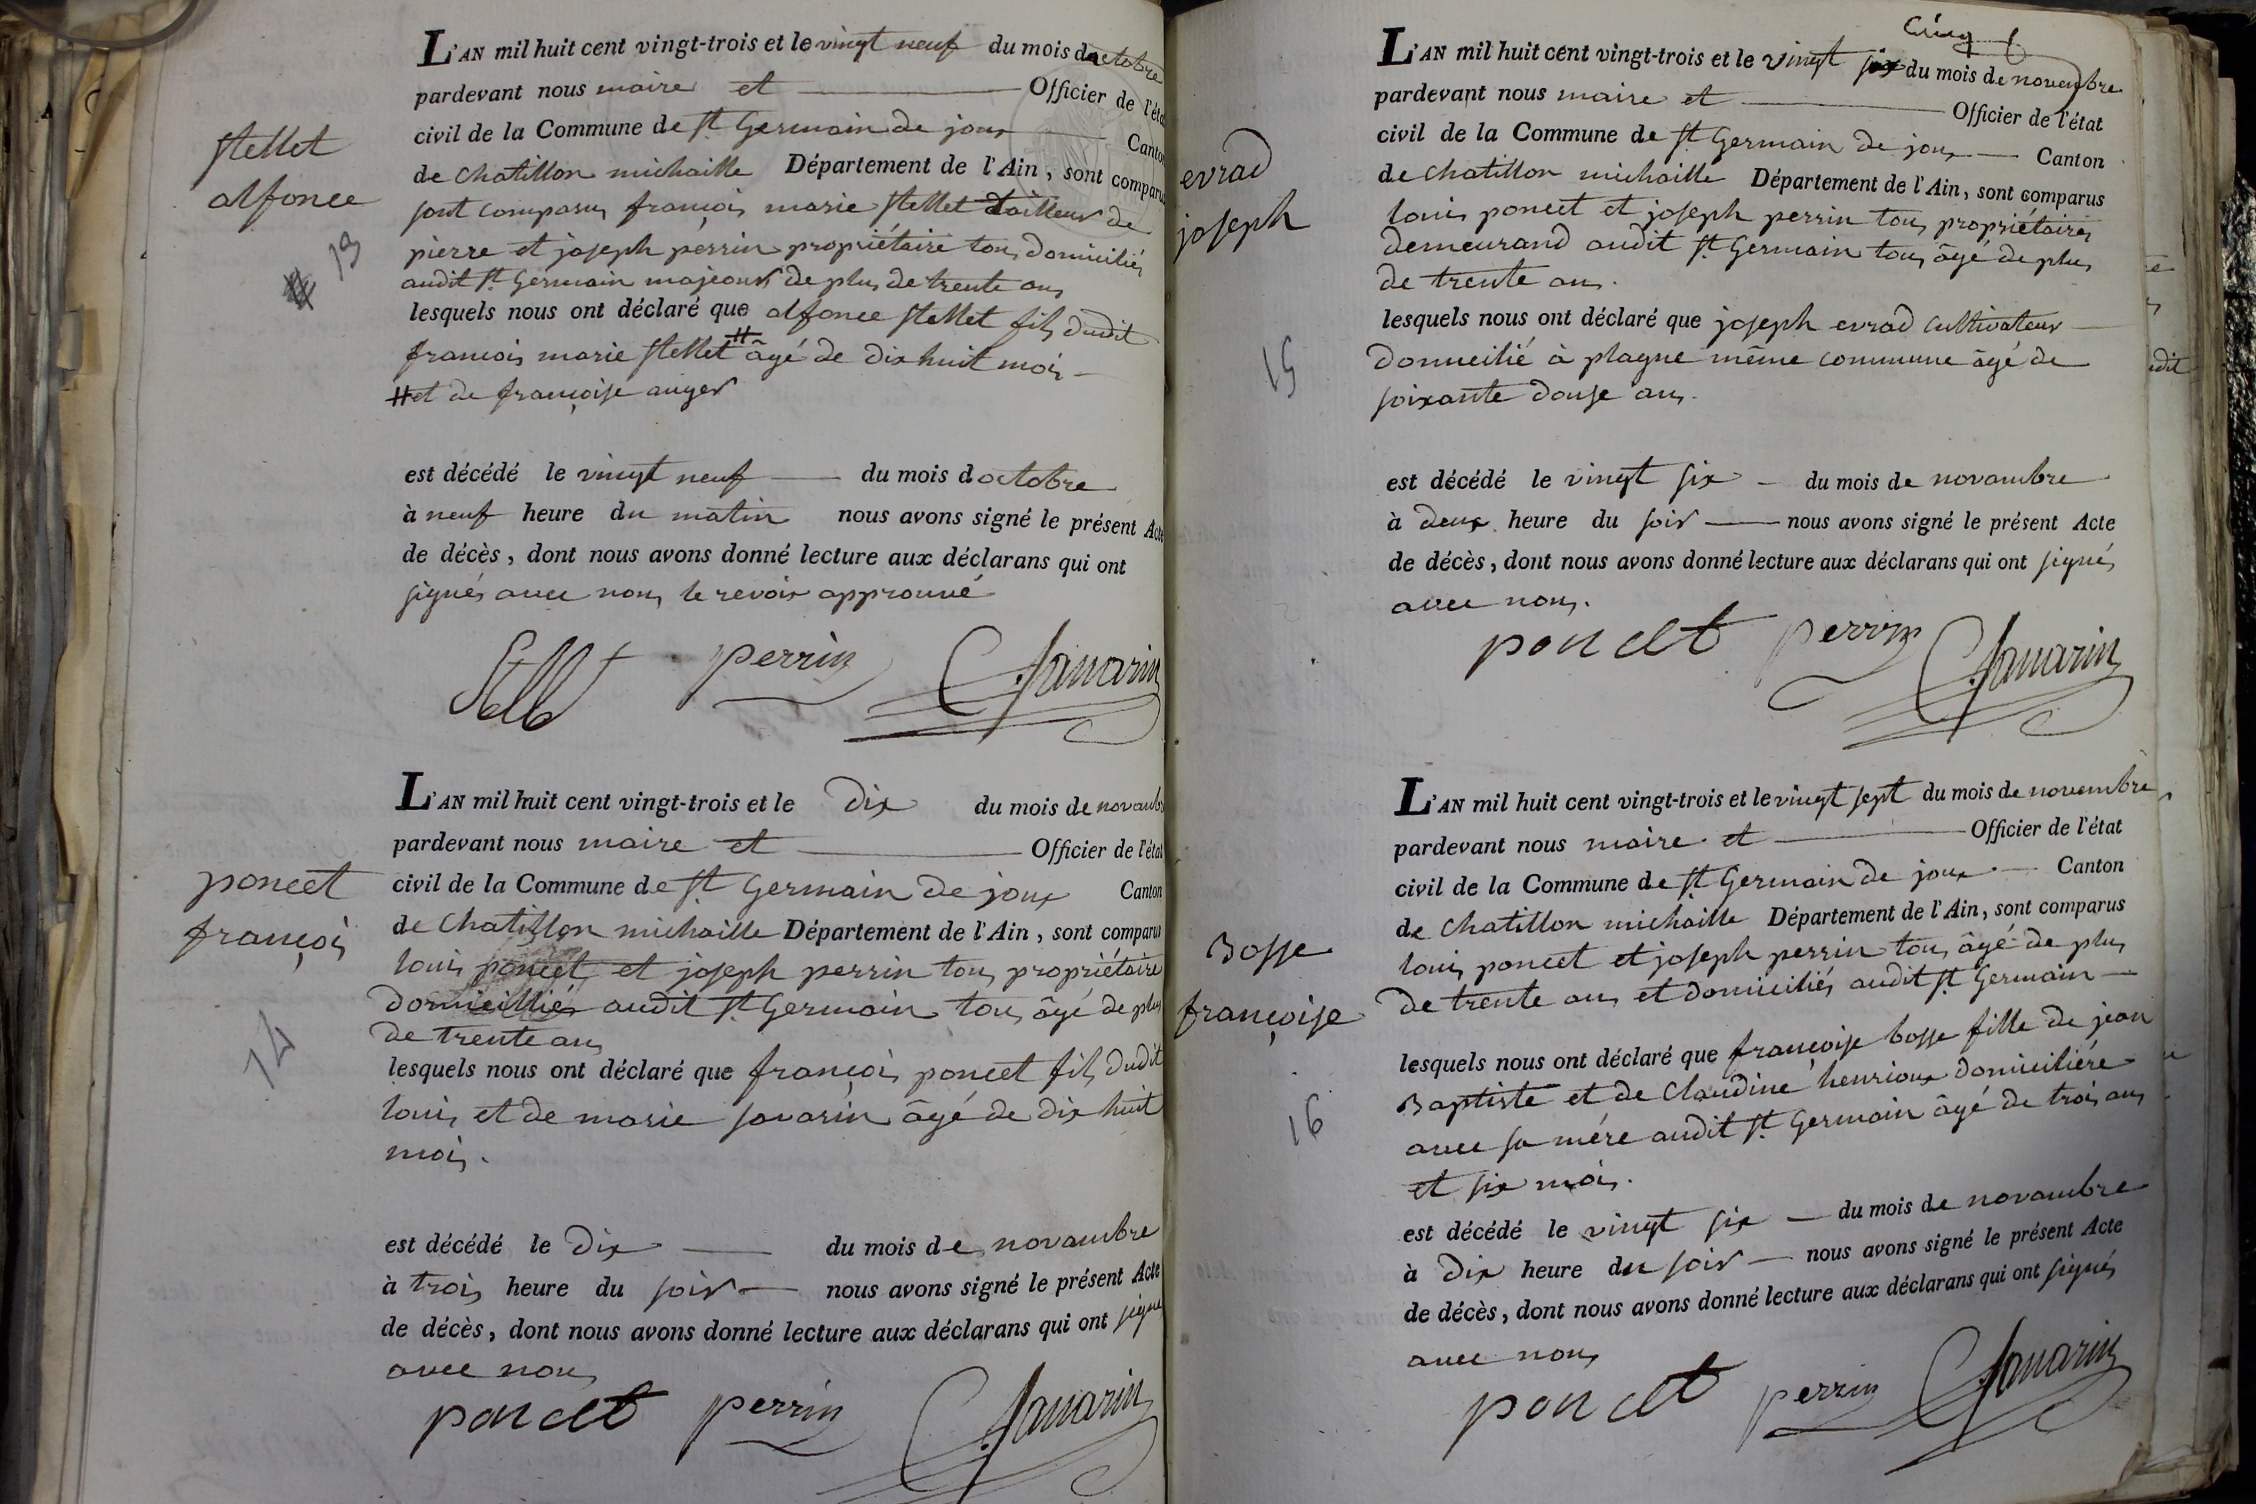 stellet
alfonce
13
L'AN mil huit cent vingt-trois et le vingt neuf du mois doctobre
pardevant nous maire et Officier de l'état
civil de la Commune de st Germain de joux Canton
de Chatillon michaille Département de l'Ain, sont comparus
sont comparus françois marie stellet tailleur de
pierre et joseph perrin propriétaire tous domiciliés
audit st Germain majeours de plus de trente ans
lesquels nous ont déclaré que alfonce stellet fils dudit
francois marie stellet # âgé de dix huit mois
# et de françoise auger
est décédé le vingt neuf du mois doctobre
à neuf heure du matin nous avons signé le présent Acte
de décès, dont nous avons donné lecture aux déclarans qui ont
signés avec nous le revois approuvé
Stellet perrin C. Savarin
poncet
françois
14
L'AN mil huit cent vingt-trois et le dix du mois de novambre
pardevant nous maire et Officier de l'état
civil de la Commune de st Germain de joux Canton
de Chatillon michaille Département de l'Ain, sont comparus
louis poncet et joseph perrin tous propriétaire
domicilliés audit st Germain tous âgé de plus
de trente ans
lesquels nous ont déclaré que françois poncet fils dudit
louis et de marie savarin âgé de dix huit
mois.
est décédé le dix du mois de novambre
à trois heure du soir nous avons signé le présent Acte
de décès, dont nous avons donné lecture aux déclarans qui ont signé
avec nous
poncet perrin C. Savarin
evrad
joseph
15
cinq
L'AN mil huit cent vingt-trois et le vingt six du mois de novembre
pardevant nous maire et Officier de l'état
civil de la Commune de st Germain de joux Canton
de Chatillon michaille Département de l'Ain, sont comparus
louis poncet et joseph perrin tous propriétaires
demeurand audit st Germain tous âgé de plus
de trente ans.
lesquels nous ont déclaré que joseph evrad cultivateur
domicilié à plagne même commune âgé de
soixante douse ans.
est décédé le vingt six du mois de novambre
à deux heure du soir nous avons signé le présent Acte
de décès, dont nous avons donné lecture aux déclarans qui ont signés
avec nous.
poncet perrin C. Savarin
Bosse
françoise
16
L'AN mil huit cent vingt-trois et le vingt sept du mois de novembre
pardevant nous maire et Officier de l'état
civil de la Commune de st Germain de joux Canton
de Chatillon michaille Département de l'Ain, sont comparus
louis poncet et joseph perrin tous âgé de plus
de trente ans et domiciliés audit st Germain
lesquels nous ont déclaré que françoise bosse fille de jean
Baptiste et de Claudine henrioux domiciliére
avec sa mére audit st Germain âgé de trois ans
et six mois.
est décédé le vingt six du mois de novambre
à dix heure du soir nous avons signé le présent Acte
de décès, dont nous avons donné lecture aux déclarans qui ont signés
avec nous
poncet perrin C. Savarin